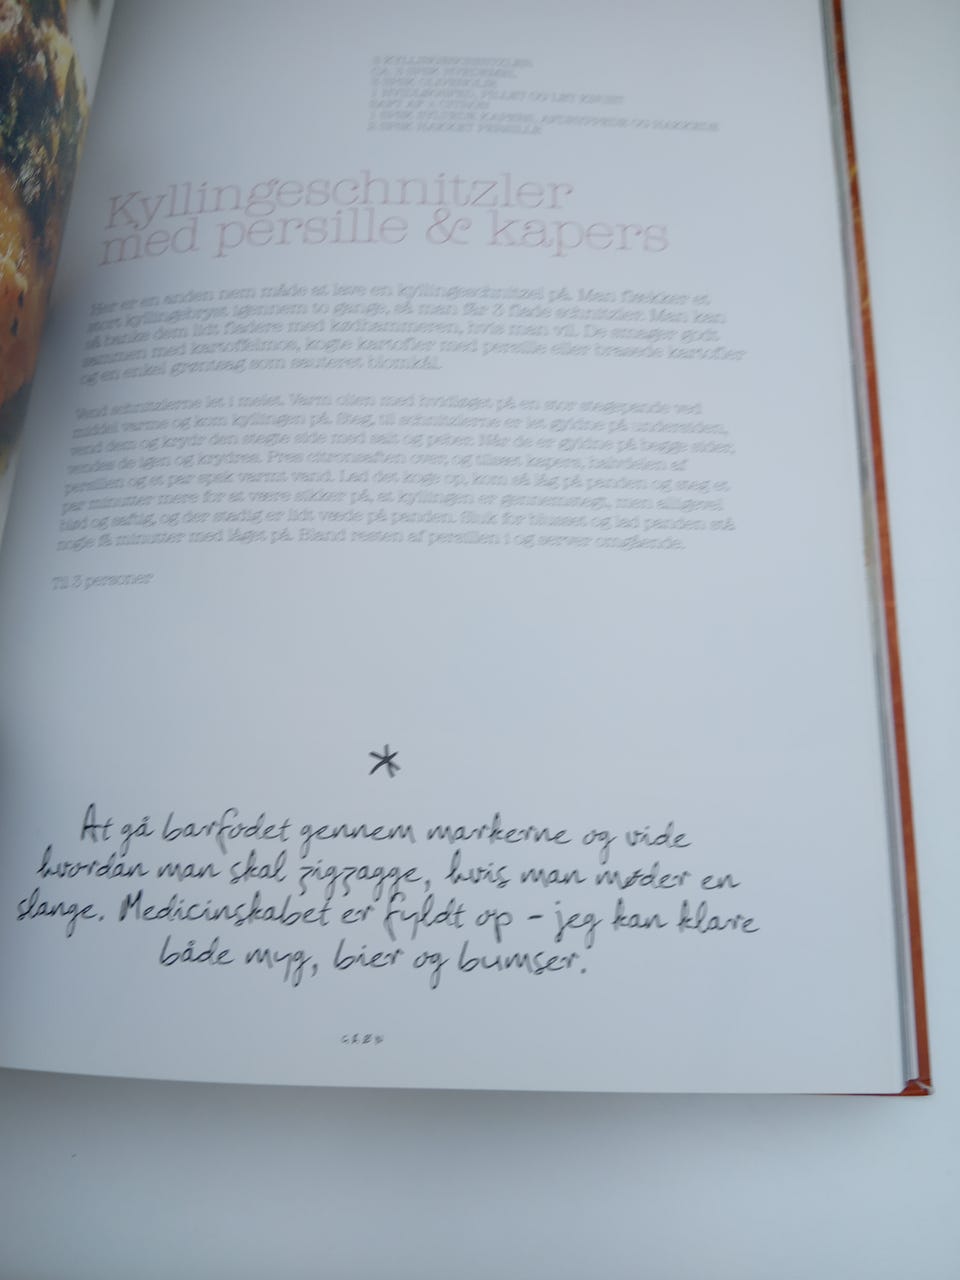 3 KYLLINGESCHNITZLER
CA. 2 SPSK HVEDEMEL
2 SPSK OLIVENOLIE
1 HVIDLØGSFED, PILLET OG LET KNUST
SAFT AF 1 CITRON
1 SPSK SYLTEDE KAPERS, AFDRYPPEDE OG HAKKEDE
2 SPSK HAKKET PERSILLE
Kyllingeschnitzler
med persille & kapers
Her er en anden nem måde at lave en kyllingeschnitzel på. Man flækker et
stort kyllingebryst igennem to gange, så man får 3 flade schnitzler. Man kan
så banke dem lidt fladere med kødhammeren, hvis man vil. De smager godt
sammen med kartoffelmos, kogte kartofler med persille eller brasede kartofler
og en enkel grøntsag som sauteret blomkål.
Vend schnitzlerne let i melet. Varm olien med hvidløget på en stor stegepande ved
middel varme og kom kyllingen på. Steg, til schnitzlerne er let gyldne på undersiden,
vend dem og krydr den stegte side med salt og peber. Når de er gyldne på begge sider,
vendes de igen og krydres. Pres citronsaften over, og tilsæt kapers, halvdelen af
persillen og et par spsk varmt vand. Lad det koge op, kom så låg på panden og steg et
par minutter mere for at være sikker på, at kyllingen er gennemstegt, men alligevel
blød og saftig, og der stadig er lidt væde på panden. Sluk for blusset og lad panden stå
nogle få minutter med låget på. Bland resten af persillen i og server omgående.
Til 3 personer
*
At gå barfodet gennem markerne og vide
hvordan man skal zigzagge, hvis man møder en
slange. Medicinskabet er fyldt op – jeg kan klare
både myg, bier og bumser.